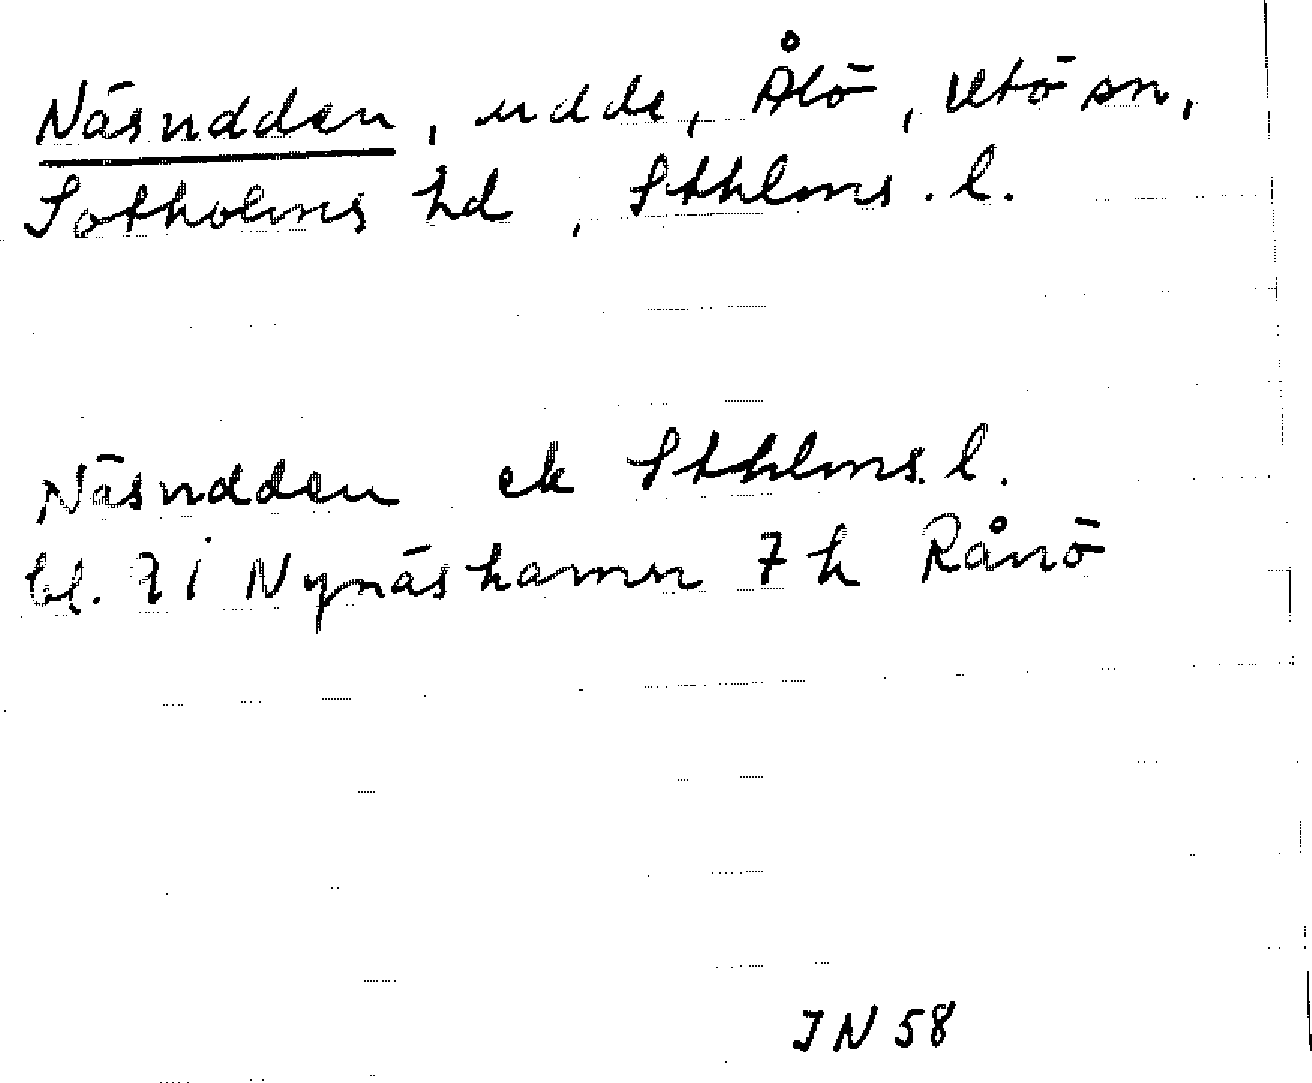 Näsudden, udde, Ålö, Utö sn,
Sotholms hd, Sthlms. l.
Näsudden ek Sthlms. l.
bl. 7 i Nynäshamn 7 h Rånö
IN 58